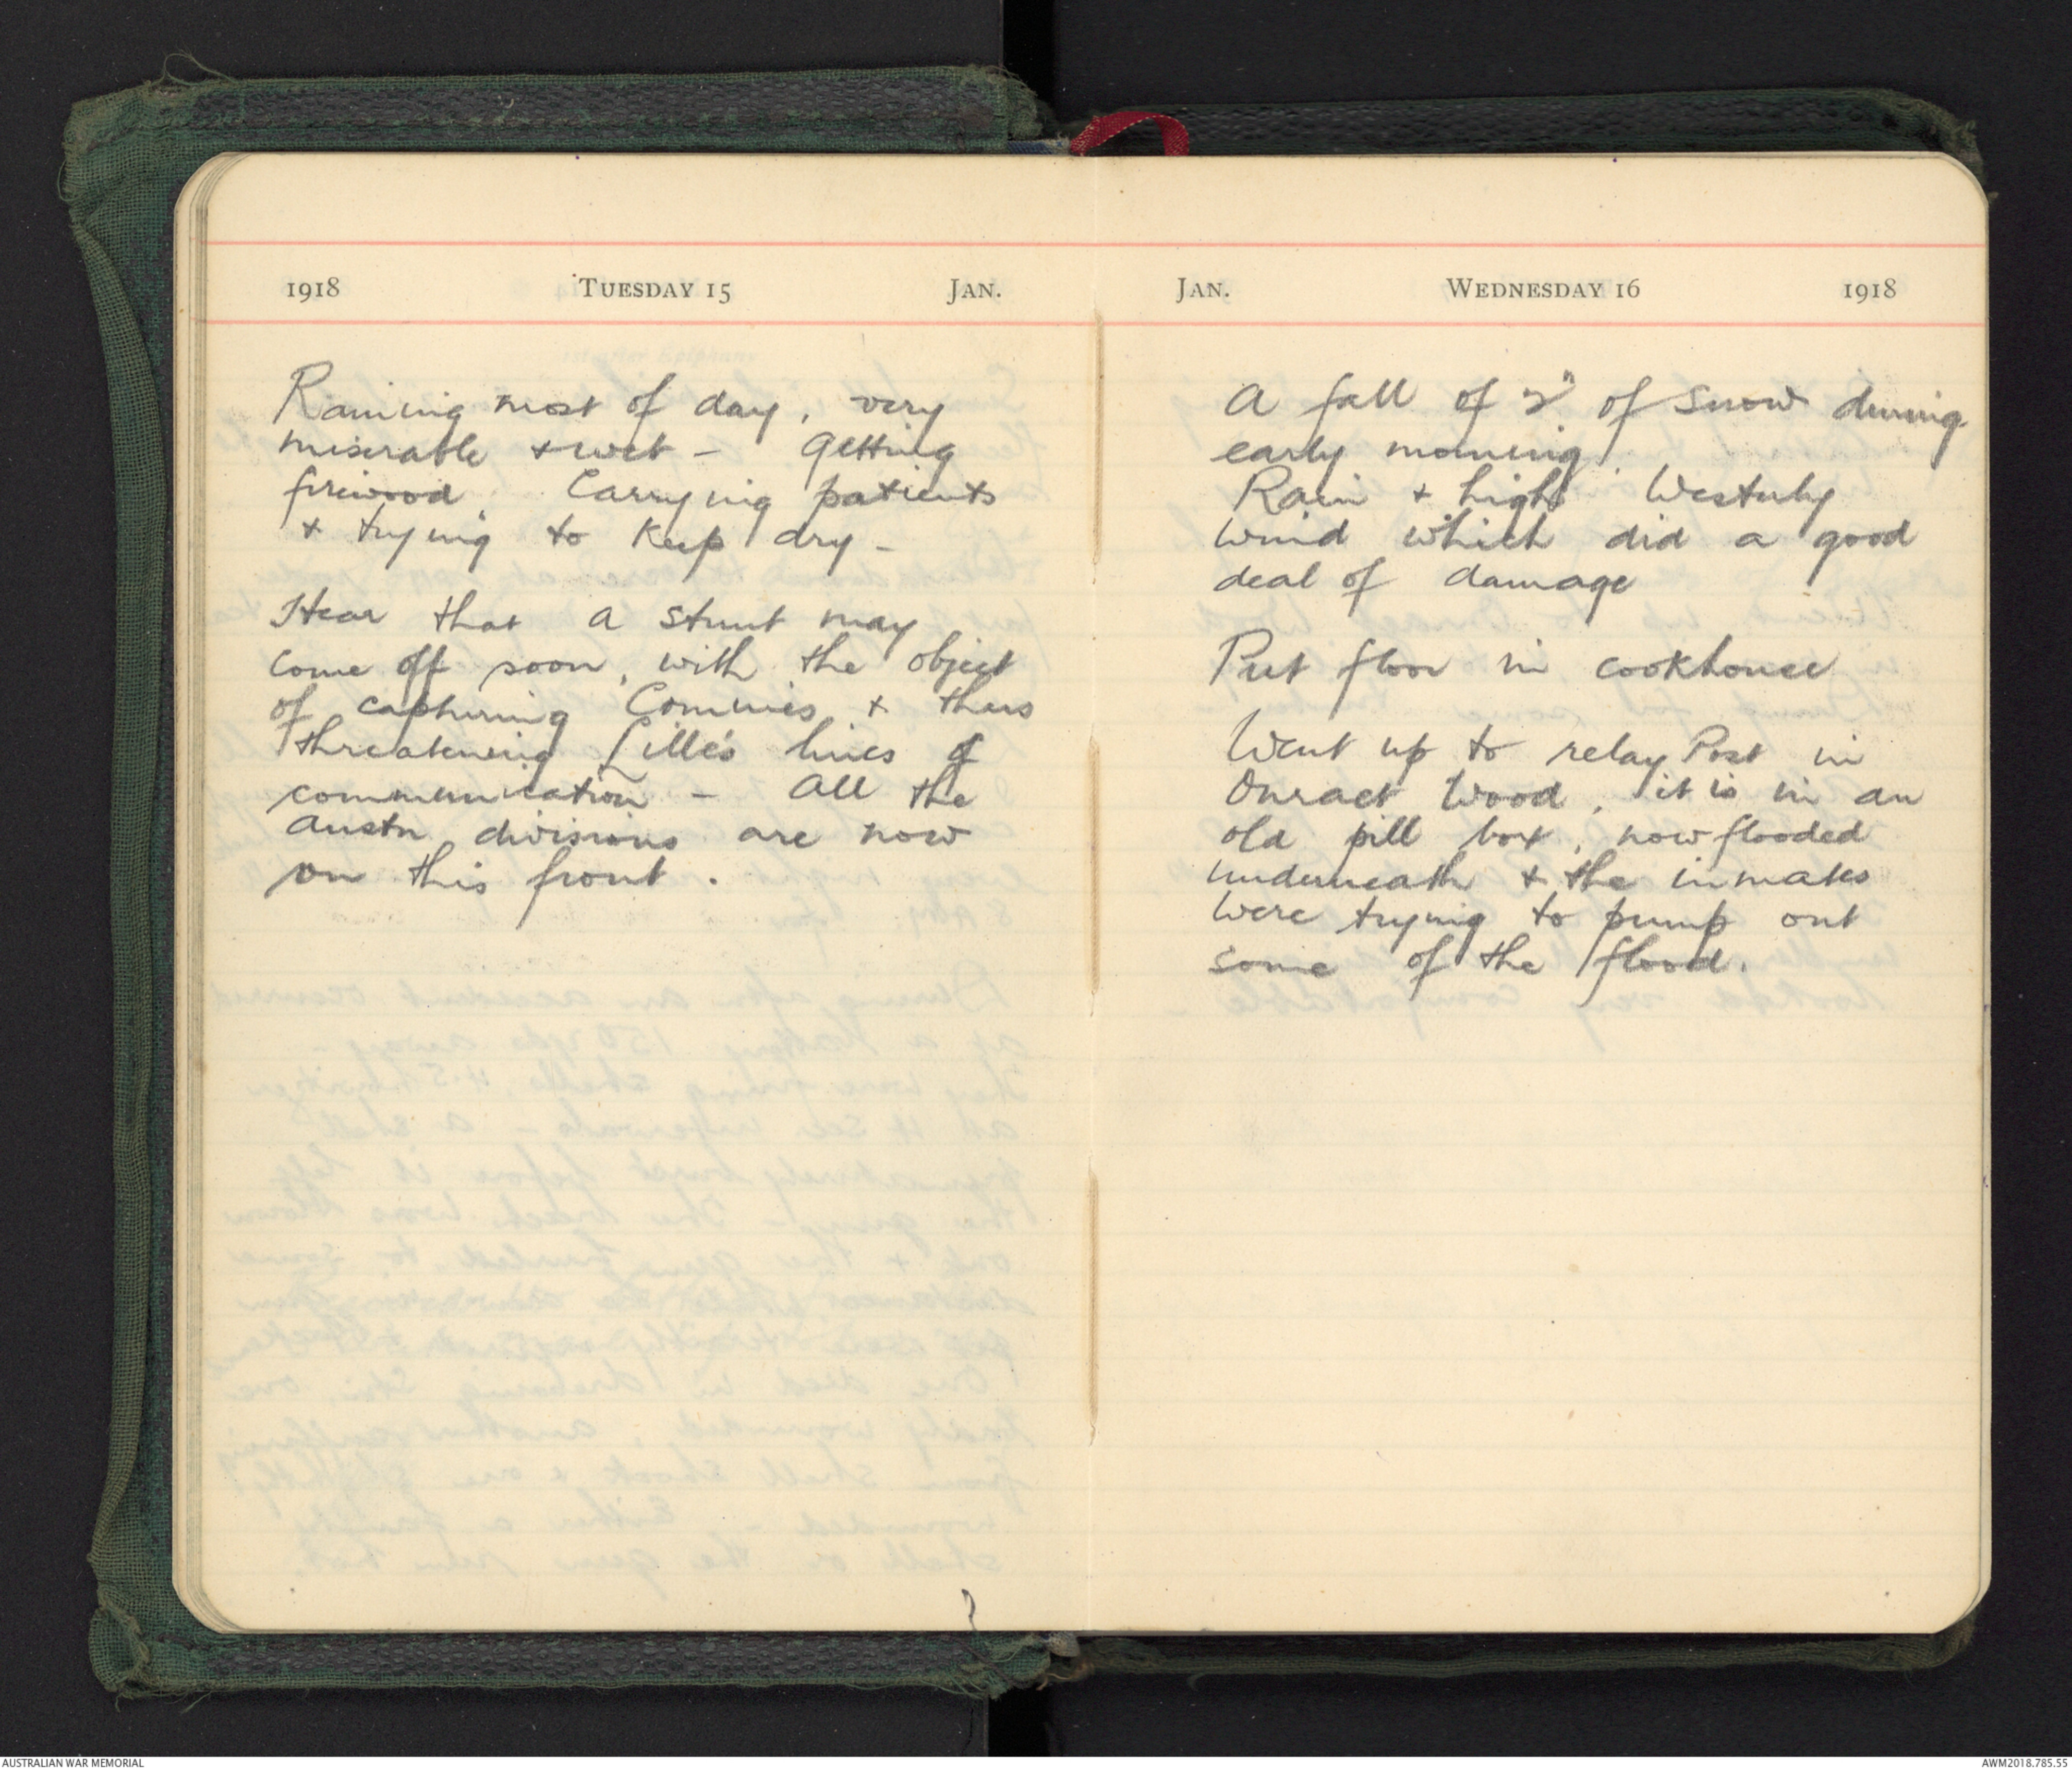 1918 TUESDAY 15 JAN.
Raining most of day, very
miserable & wet - Getting
firewood. Carrying patients
& trying to keep dry -
Hear that a stunt may
come off soon, with the object
of capturing Commies & thus
threatening Lille's lines of
communication - All the
Austn divisions are now
on this front.
JAN. WEDNESDAY 16 1918
A fall of 2" of snow during
early morning.
Rain & high Westerly
wind which did a good
deal of damage
Put floor in cookhouse
Went up to relay Post in
Onraet Wood, it is in an
old pill box, now flooded
underneath & the inmates
were trying to pump out
some of the flood.
AUSTRALIAN WAR MEMORIAL
AWM2018.785.55